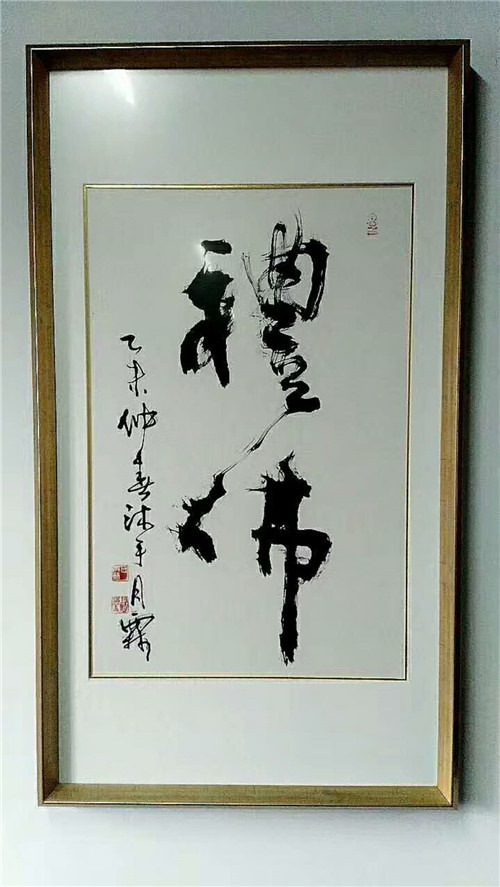 禮佛
乙未仲春沐手月霖